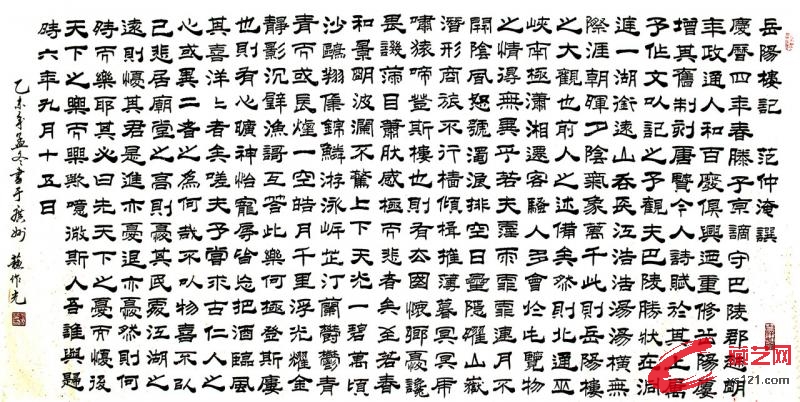 岳陽樓記 范仲淹撰
慶曆四年春滕子京謫守巴陵郡越明
年政通人和百廢俱興迺重修岳陽廔
增其舊制刻唐賢今人詩賦於其上屬
予作文以記之予觀夫巴陵勝狀在洞
庭一湖銜遠山吞長江浩浩湯湯橫無
際涯朝暉夕陰氣象萬千此則岳陽樓
之大觀也前人之述備矣然則北通巫
峽南極瀟湘遷客騷人多會於此覽物
之情得無異乎若夫霪雨霏霏連月不
開陰風怒號濁浪排空日星隱耀山嶽
潛形商旅不行檣傾楫摧薄暮冥冥虎
嘯猿啼登斯樓也則有去國懷鄉憂讒
畏譏滿目蕭然感極而悲者矣至若春
和景明波瀾不驚上下天光一碧萬頃
沙鷗翔集錦鱗游泳岸芷汀蘭鬱鬱青
青而或長煙一空皓月千里浮光耀金
靜影沉璧漁謌互答此樂何極登斯廔
也則有心曠神怡寵辱皆忘把酒臨風
其喜洋洋者矣嗟夫予嘗求古仁人之
心或異二者之為何哉不以物喜不以
己悲居廟堂之高則憂其民處江湖之
遠則憂其君是進亦憂退亦憂然則何
時而樂耶其必曰先天下之憂而憂後
天下之樂而樂歟噫微斯人吾誰與歸
時六年九月十五日
乙未年孟冬書于 作光
藏艺网
121.com